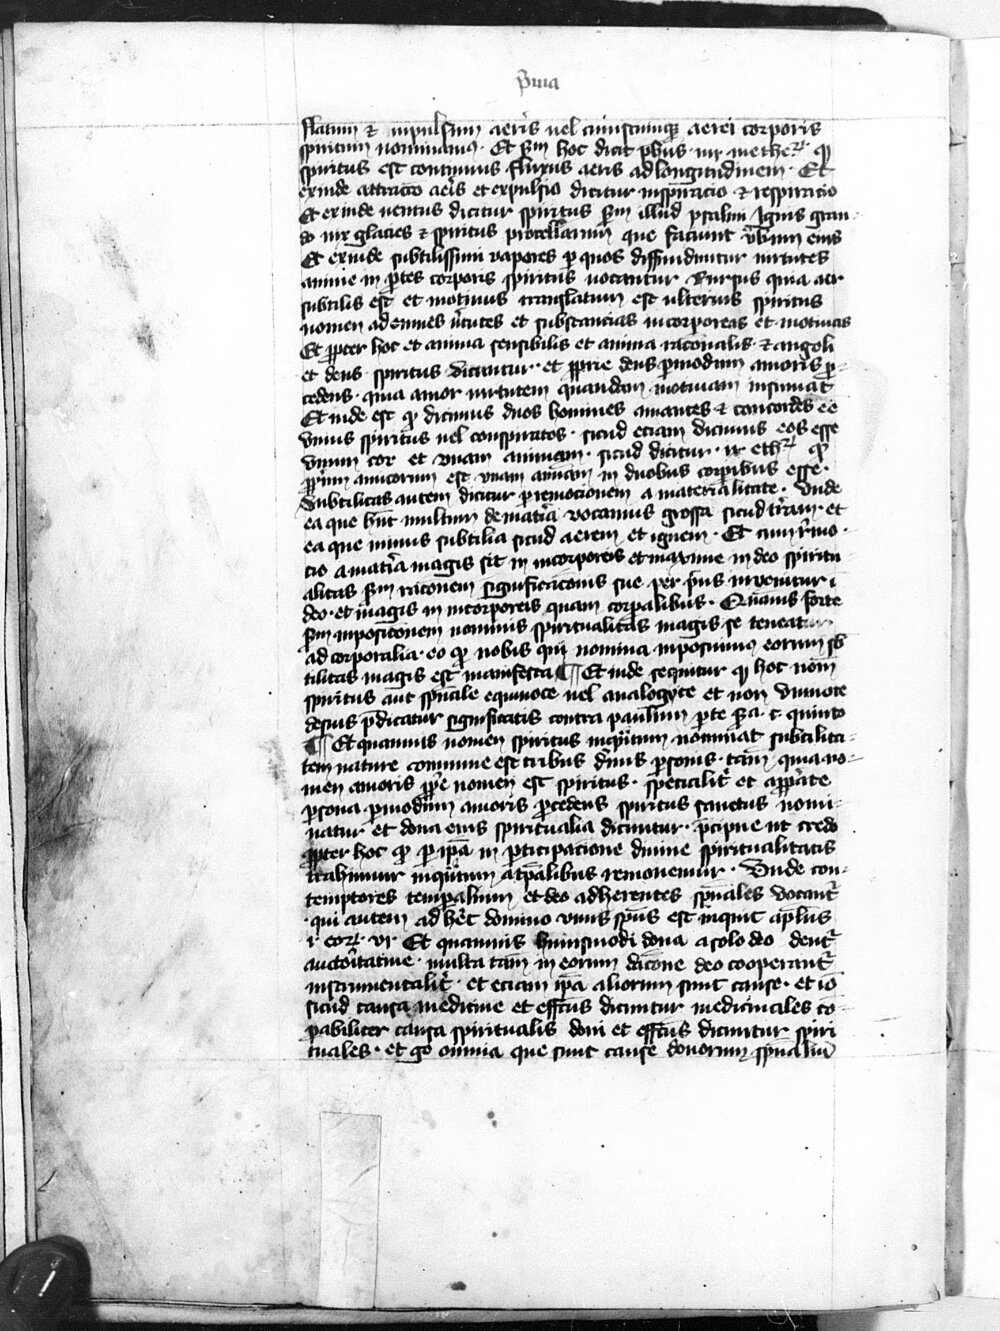 p̄ma
flatum ⁊ inpulsum aeris uel cuiuscumqꝫ aerei corporis
spiritum nominamus · Et sm̄ hoc dicit ph̄us · iiijͬ metheꝝ · qͩ
spiritus est continuus fluxus aeris ad longitudinem · Et
exinde attractio aeris et expulsio dicitur inspiracio ⁊ respiracio
Et exinde uentus dicitur spiritus sm̄ illud psalmi Ignis gran-
do nix glacies ⁊ spiritus procellarum que faciunt v̄bum eius
Et exinde subtilissimi vapores ꝑ quos diffunduntur uirtutes
anime in ꝑtes corporis spiritus uocantur Rursus quia aer
subtilis est et motiuus translatum est ulterius spiritus
nomen ad omnes v̄tutes et substancias incorporeas et motiuas
Et ꝓpter hoc et anima sensibilis et anima rac̄onalis ⁊ angeli
et deus spiritus dicuntur · et ꝓprie deus ꝑ modum amoris ꝓ-
cedens · quia amor uirtutem quandam motiuam insinuat
Et inde est qͩ dicimus duos homines amantes ⁊ concordes ee̅
vnius spiritus uel conspiratos · sicud eciam dicimus eos esse
vnum cor et vnam animam · sicud dicitur · ix eth̄ꝝ qͩ
ꝓprium amicorum est vnam animam in duobus corporibus esse ·
Subtilitas autem dicitur ꝑ remocionem a materialitate · Vnde
ea que hn̄t multum de mat̄ia vocamus grossa sicud t̄ram · et
ea que minus subtilia sicud aerem et ignem · Et cum r̄mo-
cio a mat̄ia magis sit in incorporeis et maxime in deo spiritu-
alitas sm̄ rac̄onem significac̄onis sue per p̄us inuenitur ī
deo · et magis in incorporeis quam corꝑalibus · Quamuis forte
sm̄ imposic̄onem nominis spiritualitas magis se teneat
ad corporalia · eo qͩ nobis qui nomina inposuimus eorum sb̄-
tilitas magis est manifesta ¶ Et inde sequitur qͩ hoc nom̄
spiritus aut sp̄uale equiuoce uel analogyce et non vniuoce
de suis p̄dicatur significatis contra paulum ꝑte sc̄da · c · quinto
¶ Et quamuis nomen spiritus inqͣntum nominat subtilita-
tem nature commune est tribus diuinis ꝑsonis · tam̄ quia no-
men amoris ꝓprie nomen est spiritus · specialit̄ et app̄ate
ꝑsona ꝑ modum amoris ꝓcedens spiritus sanctus nomi-
natur et dona eius spiritualia dicuntur · p̄cipue ut credo
ꝓpter hoc qͩ ꝑ ip̄a in ꝑticipacione diuine spiritualitatis
trahimur inqͣntum a tꝑalibus remouemur · Vnde con-
temptores temporalium et deo adherentes sp̄uales vocant̄
· qui autem adh̄et domino vnus sp̄us est inquit ap̄lus
i · coꝝ · vi · Et quamuis huiusmodi dona a solo deo dent̄
auctoritatiue · multa tam̄ in eorum dac̄one deo cooperant̄
instrumentalit̄ · et eciam ip̄a aliorum sunt cause · et iō
sicud causa medicine et effectus dicuntur medicinales co-
pabiliter causa spiritualis doni et effectus dicuntur spiri
tuales · et gͦ omnia que sunt cause donorum sp̄ualiū